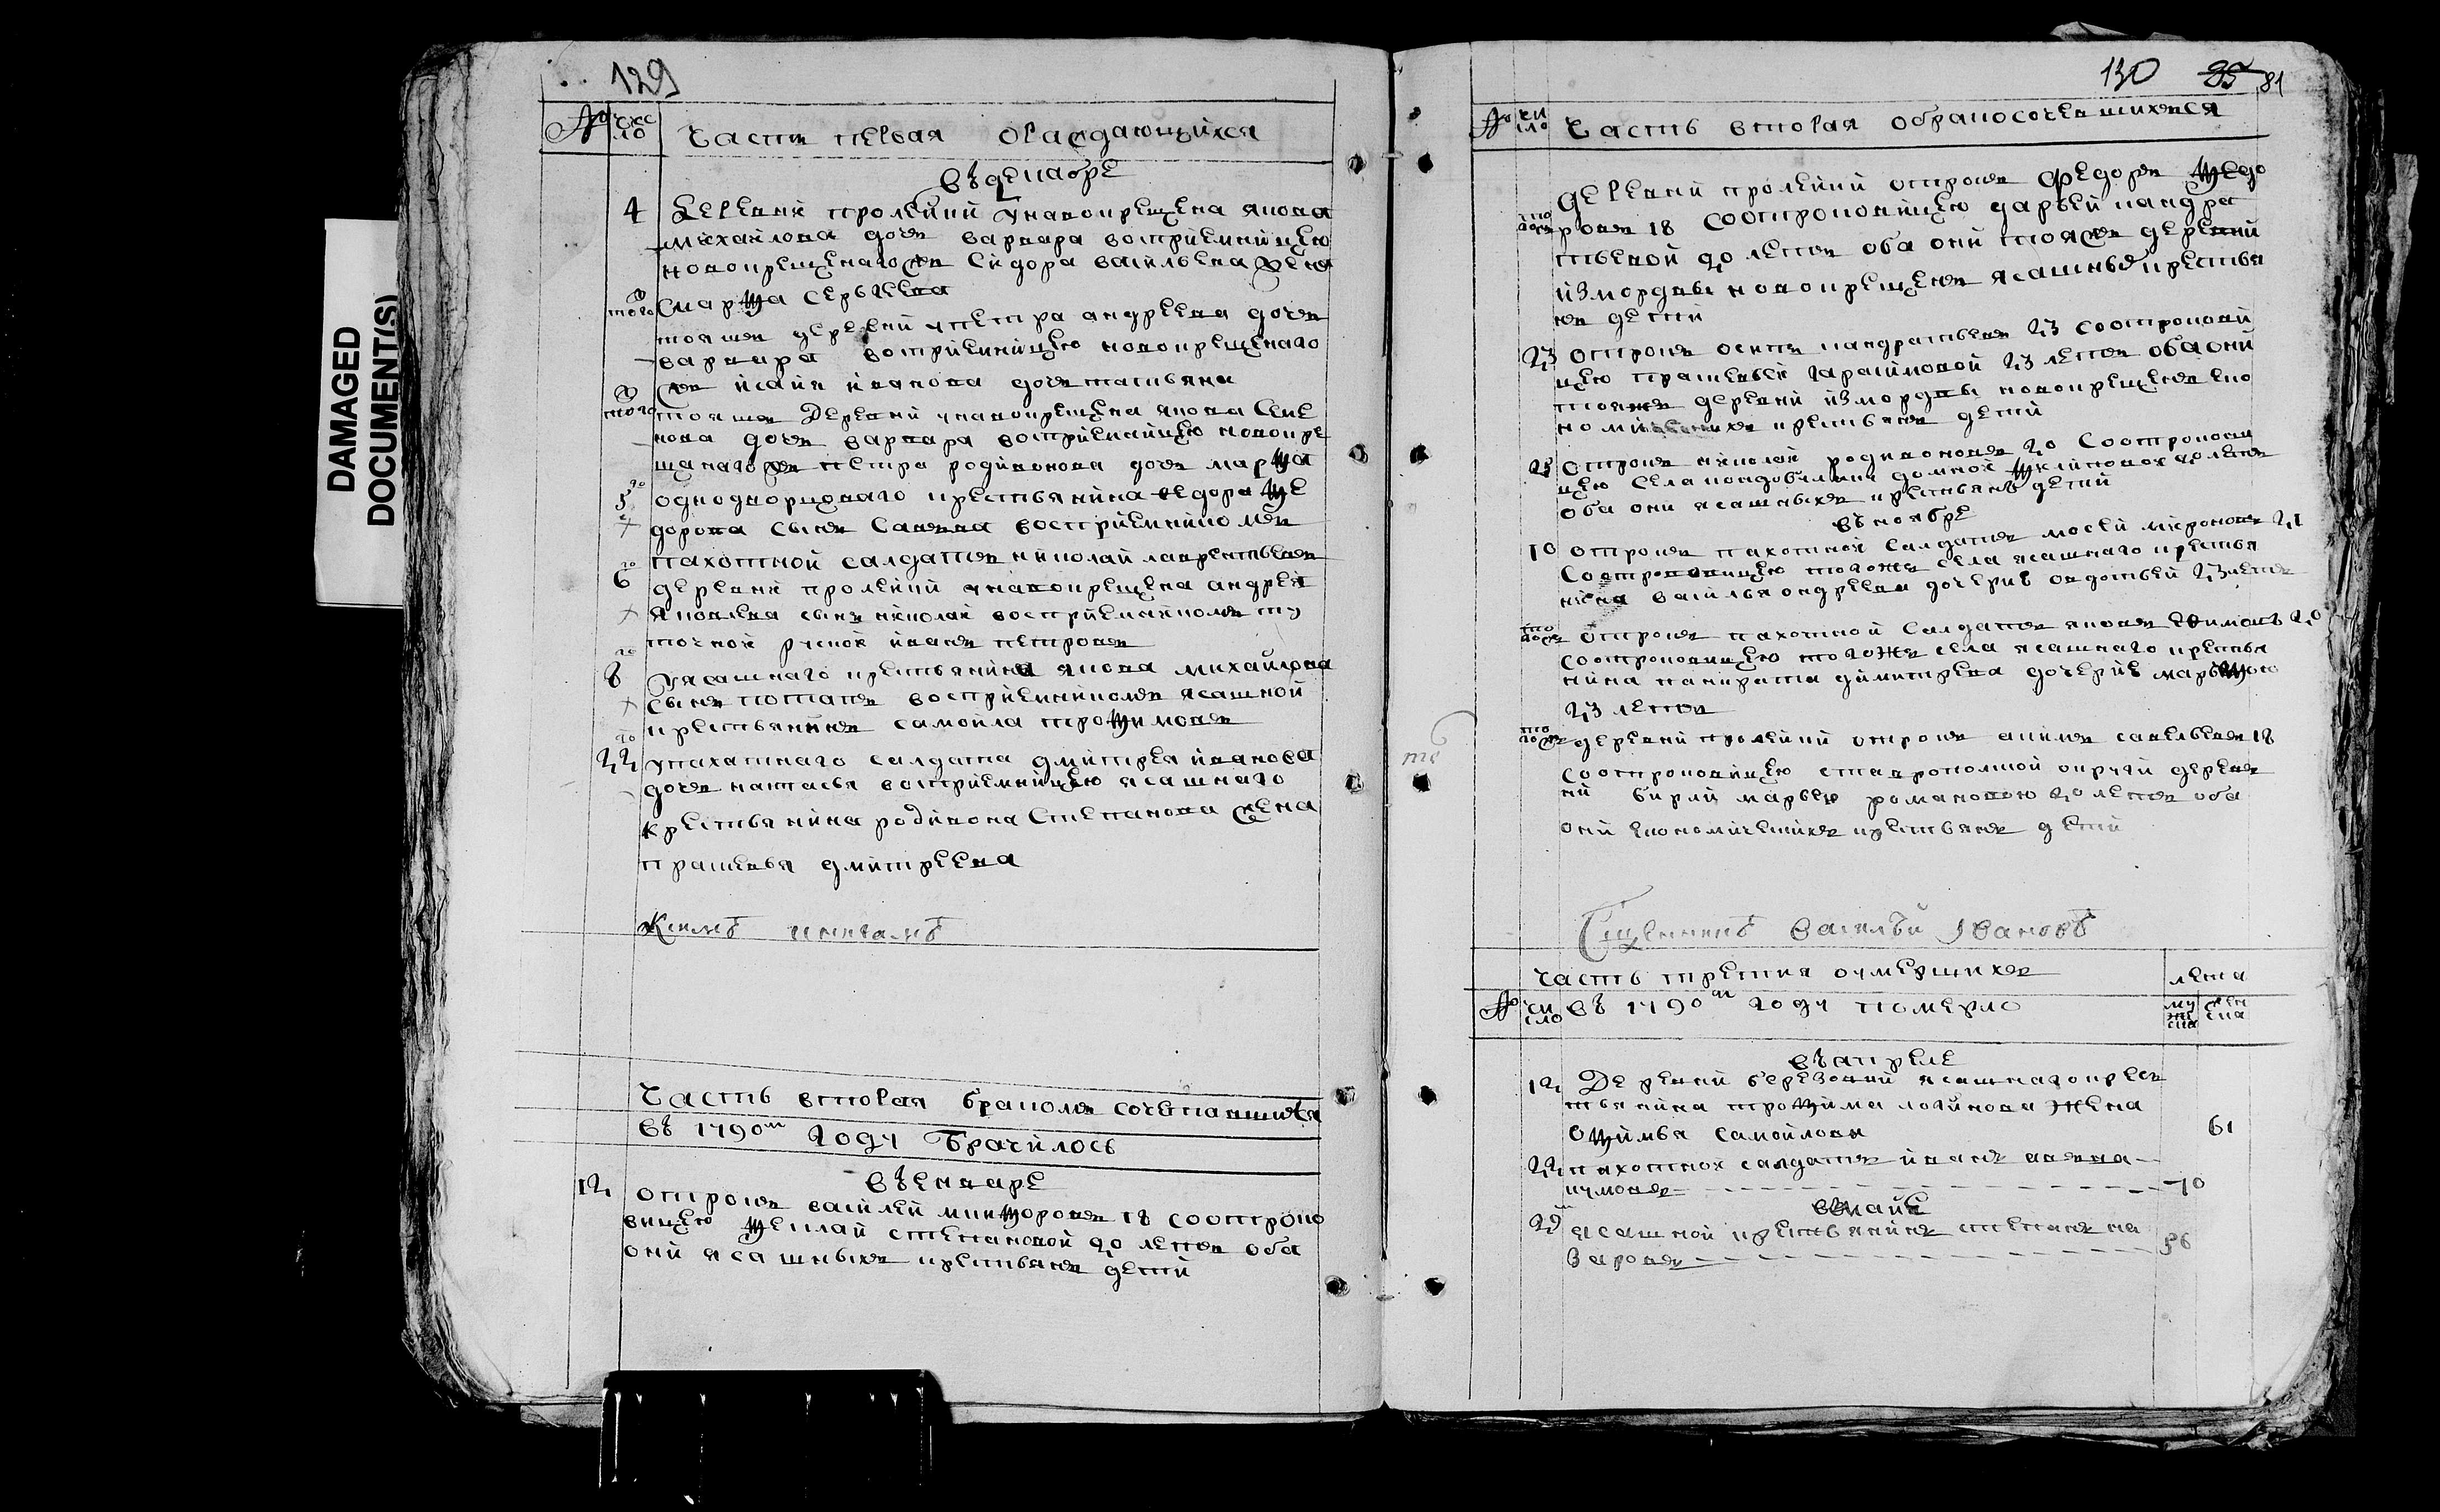 DAMAGED
DOCUMENT(S)
129
№ число Часть первая ораждающихся
въ декабре
4 Деревни пролѣйки у новокрещена якова
михайлова дочь варвара восприемницею
новокрещенаго сидора васильева жена
марѳа сергѣева
того тояжъ деревни у петра андреева дочь
варвара восприемницею новокрещенаго
исаия иванова дочь татьяна
того тояжъ деревни у новокрещена якова семе
нова дочь варвара восприемницею новокре
щенаго петра родивонова дочь марѳа
5 однодворцоваго крестьянина ѳедора ѳе
дорова сынъ восприемникомъ
пахотной салдатъ николай лаврентьевъ
6 деревни пролѣйки у новокрещена андрея
яковлева сынъ николай восприемникомъ
иванъ петровъ
8 у ясашнаго крестьянина якова михайлова
сынъ потапъ восприемникомъ ясашной
крестьянинъ самойла троѳимовъ
22 у пахатнаго салдата дмитрея иванова
дочь настасья восприемницею ясашнаго
крестьянина родивона степанова жена
прасковья дмитреева
Часть вторая бракомъ сочетавшихся
въ 1790м году Брачилось
въ енваре
12 отрокъ василей никѳоровъ 18 соотроко
вицею ѳеклай степановой 20 летъ оба
они ясашныхъ крестьянъ дети
130 85 81
№ число Часть вторая обракосочевшихся
деревни пролѣйки отрокъ ѳедоръ ѳедо
того ровъ 18 соотроковицею дарьей кандра
тьевой 20 летъ оба они тояжъ деревни
измордвы новокрещенъ ясашные крестья
нъ дети
23 отрокъ осипъ кандратьевъ 23 соотрокови
цею прасковьей гарасимовой 23 летъ оба они
тояжъ деревни измордвы новокрещенъ еко
номическихъ крестьянъ дети
25 отрокъ николай родивоновъ 20 соотрокови
цею села домной 20 летъ
оба они ясашныхъ крестьянъ дети
въ ноябре
10 отрокъ пахотной салдатъ мосей мироновъ 21
соотроковицею тогожъ села ясашнаго крестья
нина василья ондреева дочерию овдотьей 23 летъ
того отрокъ пахотной салдатъ яковъ еѳимовъ 20
соотроковицею тогожъ села ясашнаго крестья
нина панкрата димитрева дочерию марьѳою
23 летъ
того деревни пролѣйки отрокъ акимъ савельевъ 18
соотроковицею ставропольской округи деревни
бирли марьею романовою 20 летъ оба
они економическихъ крестьянъ дети
Священникъ Василѣй Ивановъ
Часть третия оумершихъ лета
№ число въ 1790м году померло мужеска женска
въ апреле
12 Деревни березовки ясашнаго крес
тьянина троѳима логинова жена
оѳимья самойлова 61
22 пахотной салдатъ иванъ
кумовъ 70
въ маие
29 ясашной крестьянинъ степанъ на
заровъ 56